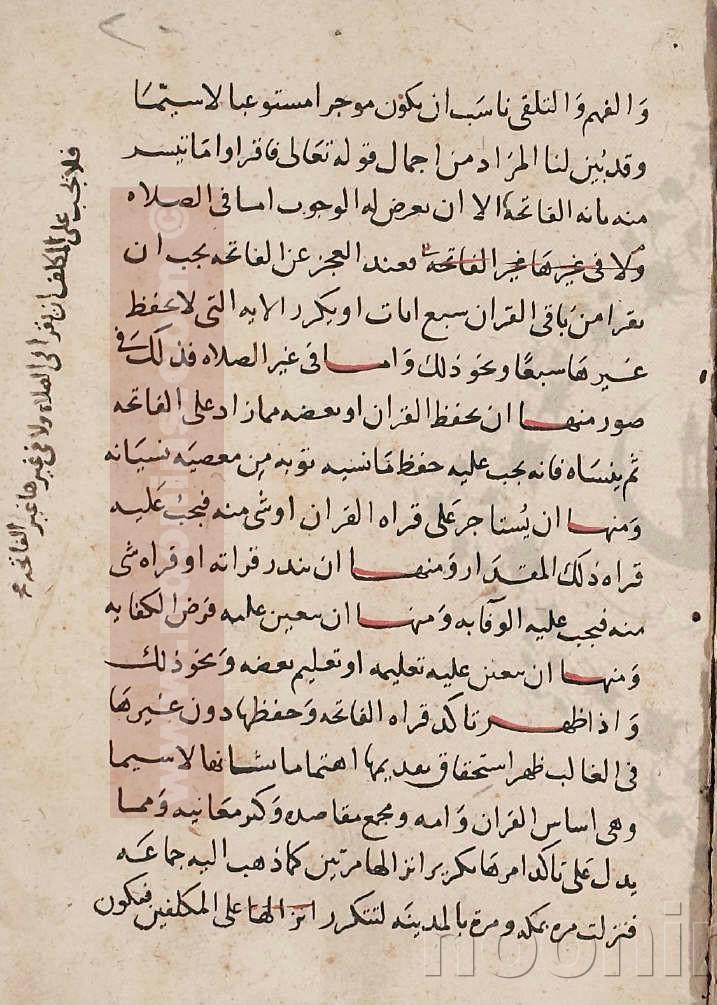 والفهم والتلقي ناسب ان يكون موجزا مستوعبا لا سيما
وقد بين لنا المراد من اجمال قوله تعالى فاقراوا ما تيسر
منه بانه الفاتحة الا ان يعرض له الوجوب اما في الصلاه
ولا في غيرها غير الفاتحه فعند العجز عن الفاتحه يجب ان
يقرا من باقي القران سبع ايات او يكرر الايه التي لا يحفظ
غيرها سبعا ونحو ذلك واما في غير الصلاه فذلك في
صور منها ان يحفظ القران او بعضه مما زاد على الفاتحه
ثم ينساه فانه يجب عليه حفظ ما نسيه توبه من معصيه نسيانه
ومنها ان يستاجر على قراه القران او شى منه فيجب عليه
قراه ذلك المقدار ومنها ان يندر قراته او قراه شى
منه فيجب عليه الوفا به ومنها ان يتعين عليه فرض الكفايه
ومنها ان يتعين عليه تعليمه او تعليم بعضه ونحو ذلك
واذا ظهر تاكد قراه الفاتحه وحفظها دون غيرها
في الغالب ظهر استحقاق تقديمها اهتماما بشانها لا سيما
وهي اساس القران وامه ومجمع مقاصده وكنز معانيه ومما
يدل على تاكد امرها تكرير انزالها مرتين كما ذهب اليه جماعه
فنزلت مره بمكه ومرة بالمدينه لتتكرر انزالها على المكلفين فيكون
فلا يجب على المكلف ان يقرا في الصلاه ولا في غيرها غير الفاتحه
www.
©
noonin